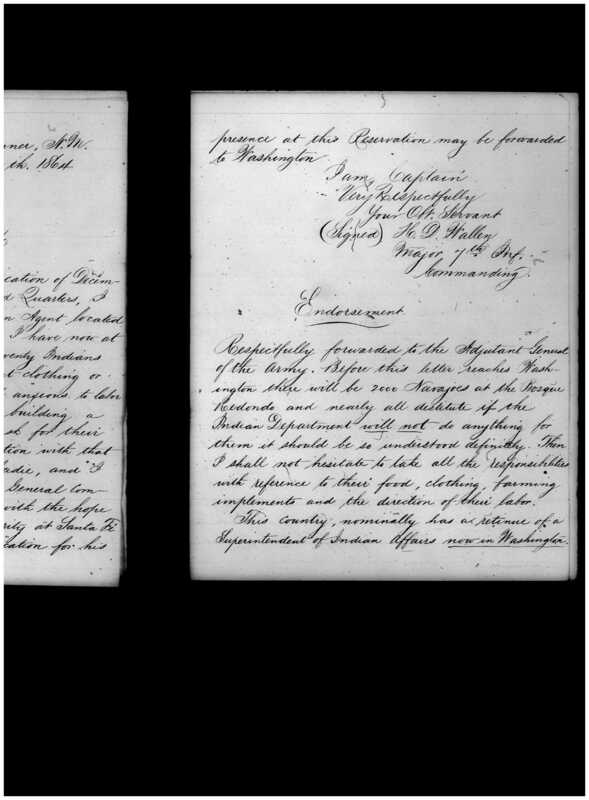 ner, N.M.
th. 1864
ication of Decem-
d Quarters, I
n Agent located
I have now at
venty Indians
t clothing or
anxious to labor
building a
for their
tion with that
adie, and I
General Com-
with the hope
rity at Santa Fé
cation for his
presence at this Reservation may be forwarded
to Washington
I am, Captain
Very Respectfully
Your Obt. Servant
(Signed) H. D. Wallen
Major, 7th Inf.
Commanding.
Endorsement
Respectfully forwarded to the Adjutant General
of the Army. Before this letter reaches Wash-
ington there will be 2000 Navajoes at the Bosque
Redondo and nearly all destitute if the
Indian Department will not do anything for
them it should be so understood definitely. Then
I shall not hesitate to take all the responsibilities
with reference to their food, clothing, farming
implements and the direction of their labor.
This country, nominally has a retinue of a
Superintendent of Indian Affairs now in Washington.